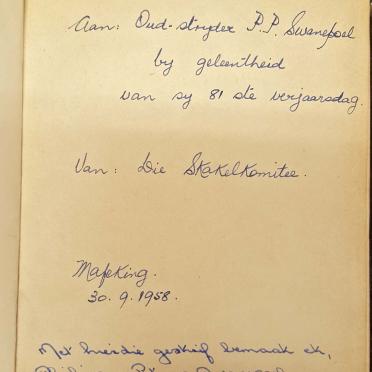 Aan: Oud-stryder P.P. Swanepoel
by geleentheid
van sy 81 ste verjaarsdag.
Van: Die Skakelkomitee.
Mafeking.
30.9.1958.
Met hierdie geskrif bemaak ek,